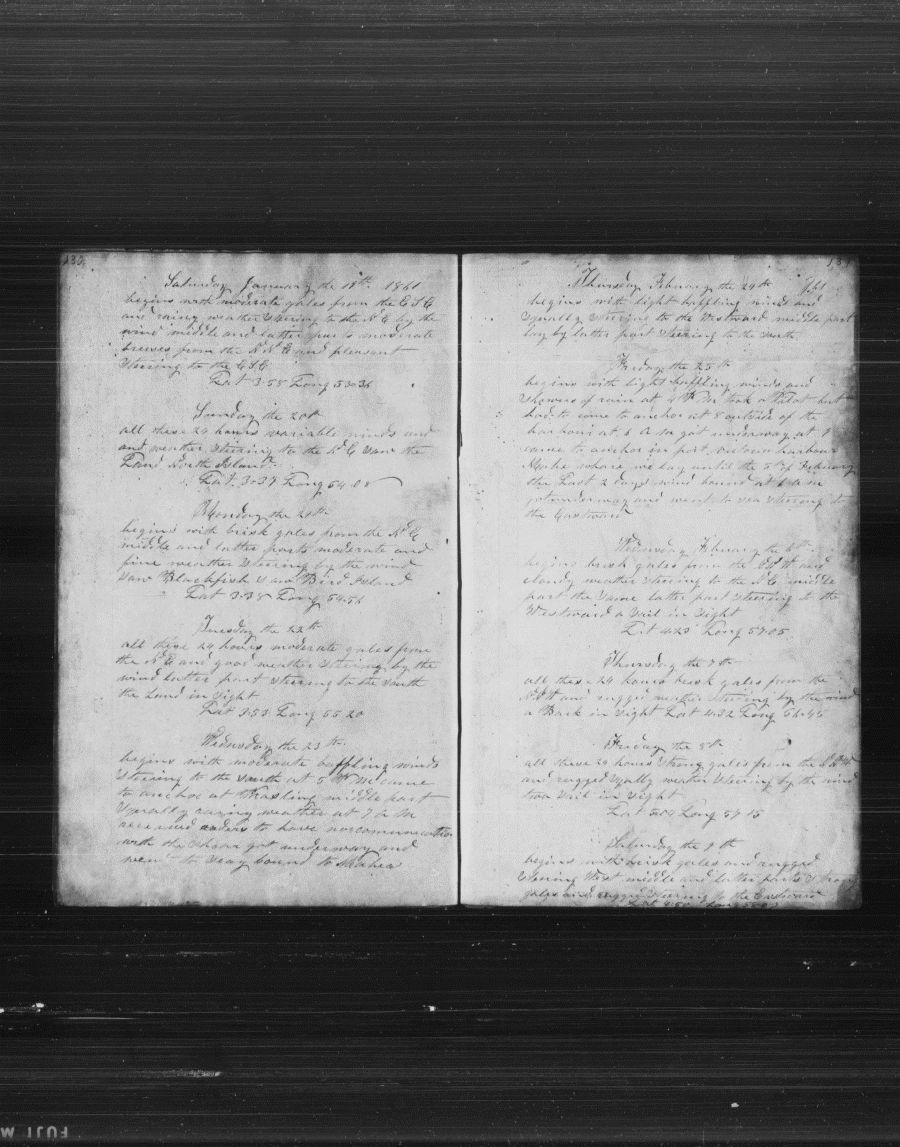 130
Saturday January the 19th 1861
begins with moderate gales from the E S E
and rainy weather Steering to the N E by the
wind middle and latter parts moderate
breezes from the N N E and pleasant
Steering to the E S E
Lat 3-58 Long 53-36
Sunday the 20th
all these 24 hours variable winds and
and weather Steering to the N E Saw the
Land North Island
Lat 3-37 Long 54-08
Monday the 21th
begins with brisk gales from the N E
middle and latter parts moderate and
fine weather Steering by the wind
Saw Blackfish Saw Bird Island
Lat 3-38 Long 54-51
Tuesday the 22th
all these 24 hours moderate gales from
the N E and good weather Steering by the
wind latter part Steering to the South
the Land in Sight
Lat 3-53 Long 55-20
Wednsday the 23th
begins with moderate baffling winds
Steering to the South at 5 P M came
to anchor at middle part
Squally rainy weather at 7 A M
received orders to have nocommunication
with the Shore got underway and
went to Seay bound to
131
Thursday February the 24th 1861
begins with light baffling winds and
Squally Steering to the Westward middle part
lay by latter part Steering to the South
Friday the 25th
begins with light baffling winds and
Showers of rain at 4 P M took a Pilot but
had to come to anchor at 8 outside of the
harbour at 6 A M got underway at 9
came to anchor in port harbour
where we lay until the 5th of February
the Last 2 days wind bound at 6 a m
gotunderway and went to sea Steering to
the Eastward
Wednsday February the 6th
begins brisk gales from the and
cloudy weather Steering to the N E middle
part the Same latter part Steering to the
Westward a Sail in Sight
Lat 4-23 Long 57-05
Thursday the 7th
all these 24 hours brisk gales from the
and rugged weather Steering by the wind
a Bark in Sight Lat 4-32 Long 56-45
Friday the 8th
all these 24 hours Strong gales from the
and rugged Squally weather Steering by the wind
two Sail in Sight
Lat Long 57-15
Saturday the 9th
begins with brisk gales and rugged
Steering West middle and latter parts Strong
gales and rugged Steering to the Eastward
Lat Long
FUJI M